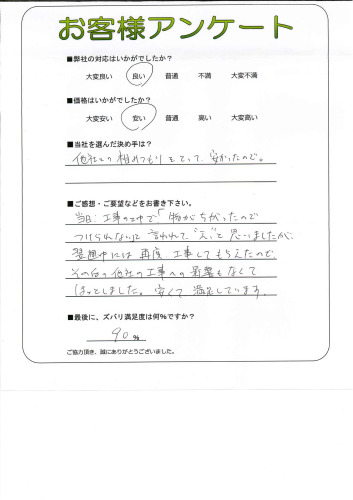 お客様アンケート
■弊社の対応はいかがでしたか?
大変良い 良い 普通 不満 大変不満
■価格はいかがでしたか?
大変安い 安い 普通 高い 大変高い
■当社を選んだ決め手は?
他社との相みつもりをとって、安かったので。
■ご感想・ご要望などをお書き下さい。
当日、工事の途中で「物がちがったので
つけられない」と言われて"え"と思いましたが、
翌週中には再度工事してもらえたので
その後の他社の工事への影響もなくて
ほっとしました。安くて満足しています。
■最後に、ズバリ満足度は何%ですか?
90 %
ご協力頂き、誠にありがとうございました。